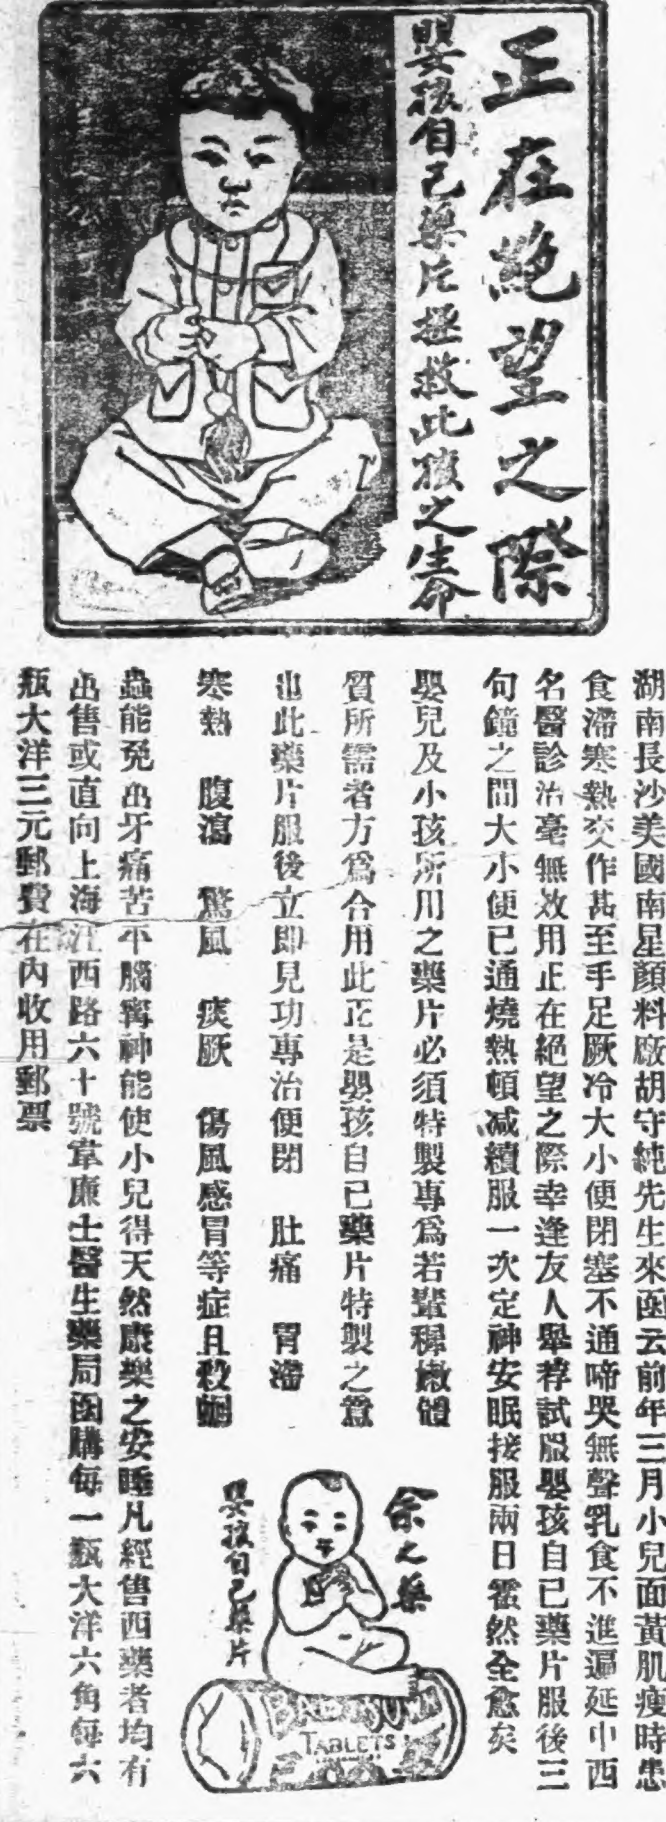 正在絕望之際
嬰孩自己藥片拯救此孩之生命
湖南長沙美國南星顏料廠胡守純先生來函云前年三月小兒面黃肌瘦時患
食滯寒熱交作甚至手足厥冷大小便閉塞不通啼哭無聲乳食不進遍延中西
名醫診治毫無效用正在絕望之際幸逢友人舉荐試服嬰孩自已藥片服後三
句鐘之間大小便已通燒熱頓减續服一次定神安眠接服兩日霍然全愈矣
嬰兒及小孩所用之藥片必須特製專爲若輩穉嫩體
質所需者方爲合用此正是嬰孩自己藥片特製之意
也此藥片服後立即見功專治便閉 肚痛 胃滯
寒熱 腹瀉 驚風 痰厥 傷風感冒等症且殺蛔
蟲能免出牙痛苦平腦寗神能使小兒得天然康樂之安睡凡經售西藥者均有
出售或直向上海江西路六十號韋廉士醫生藥局函購每一瓶大洋六角每六
瓶大洋三元郵費在內收用郵票
余之藥
嬰孩自己藥片
BABY'S OWN
TABLETS